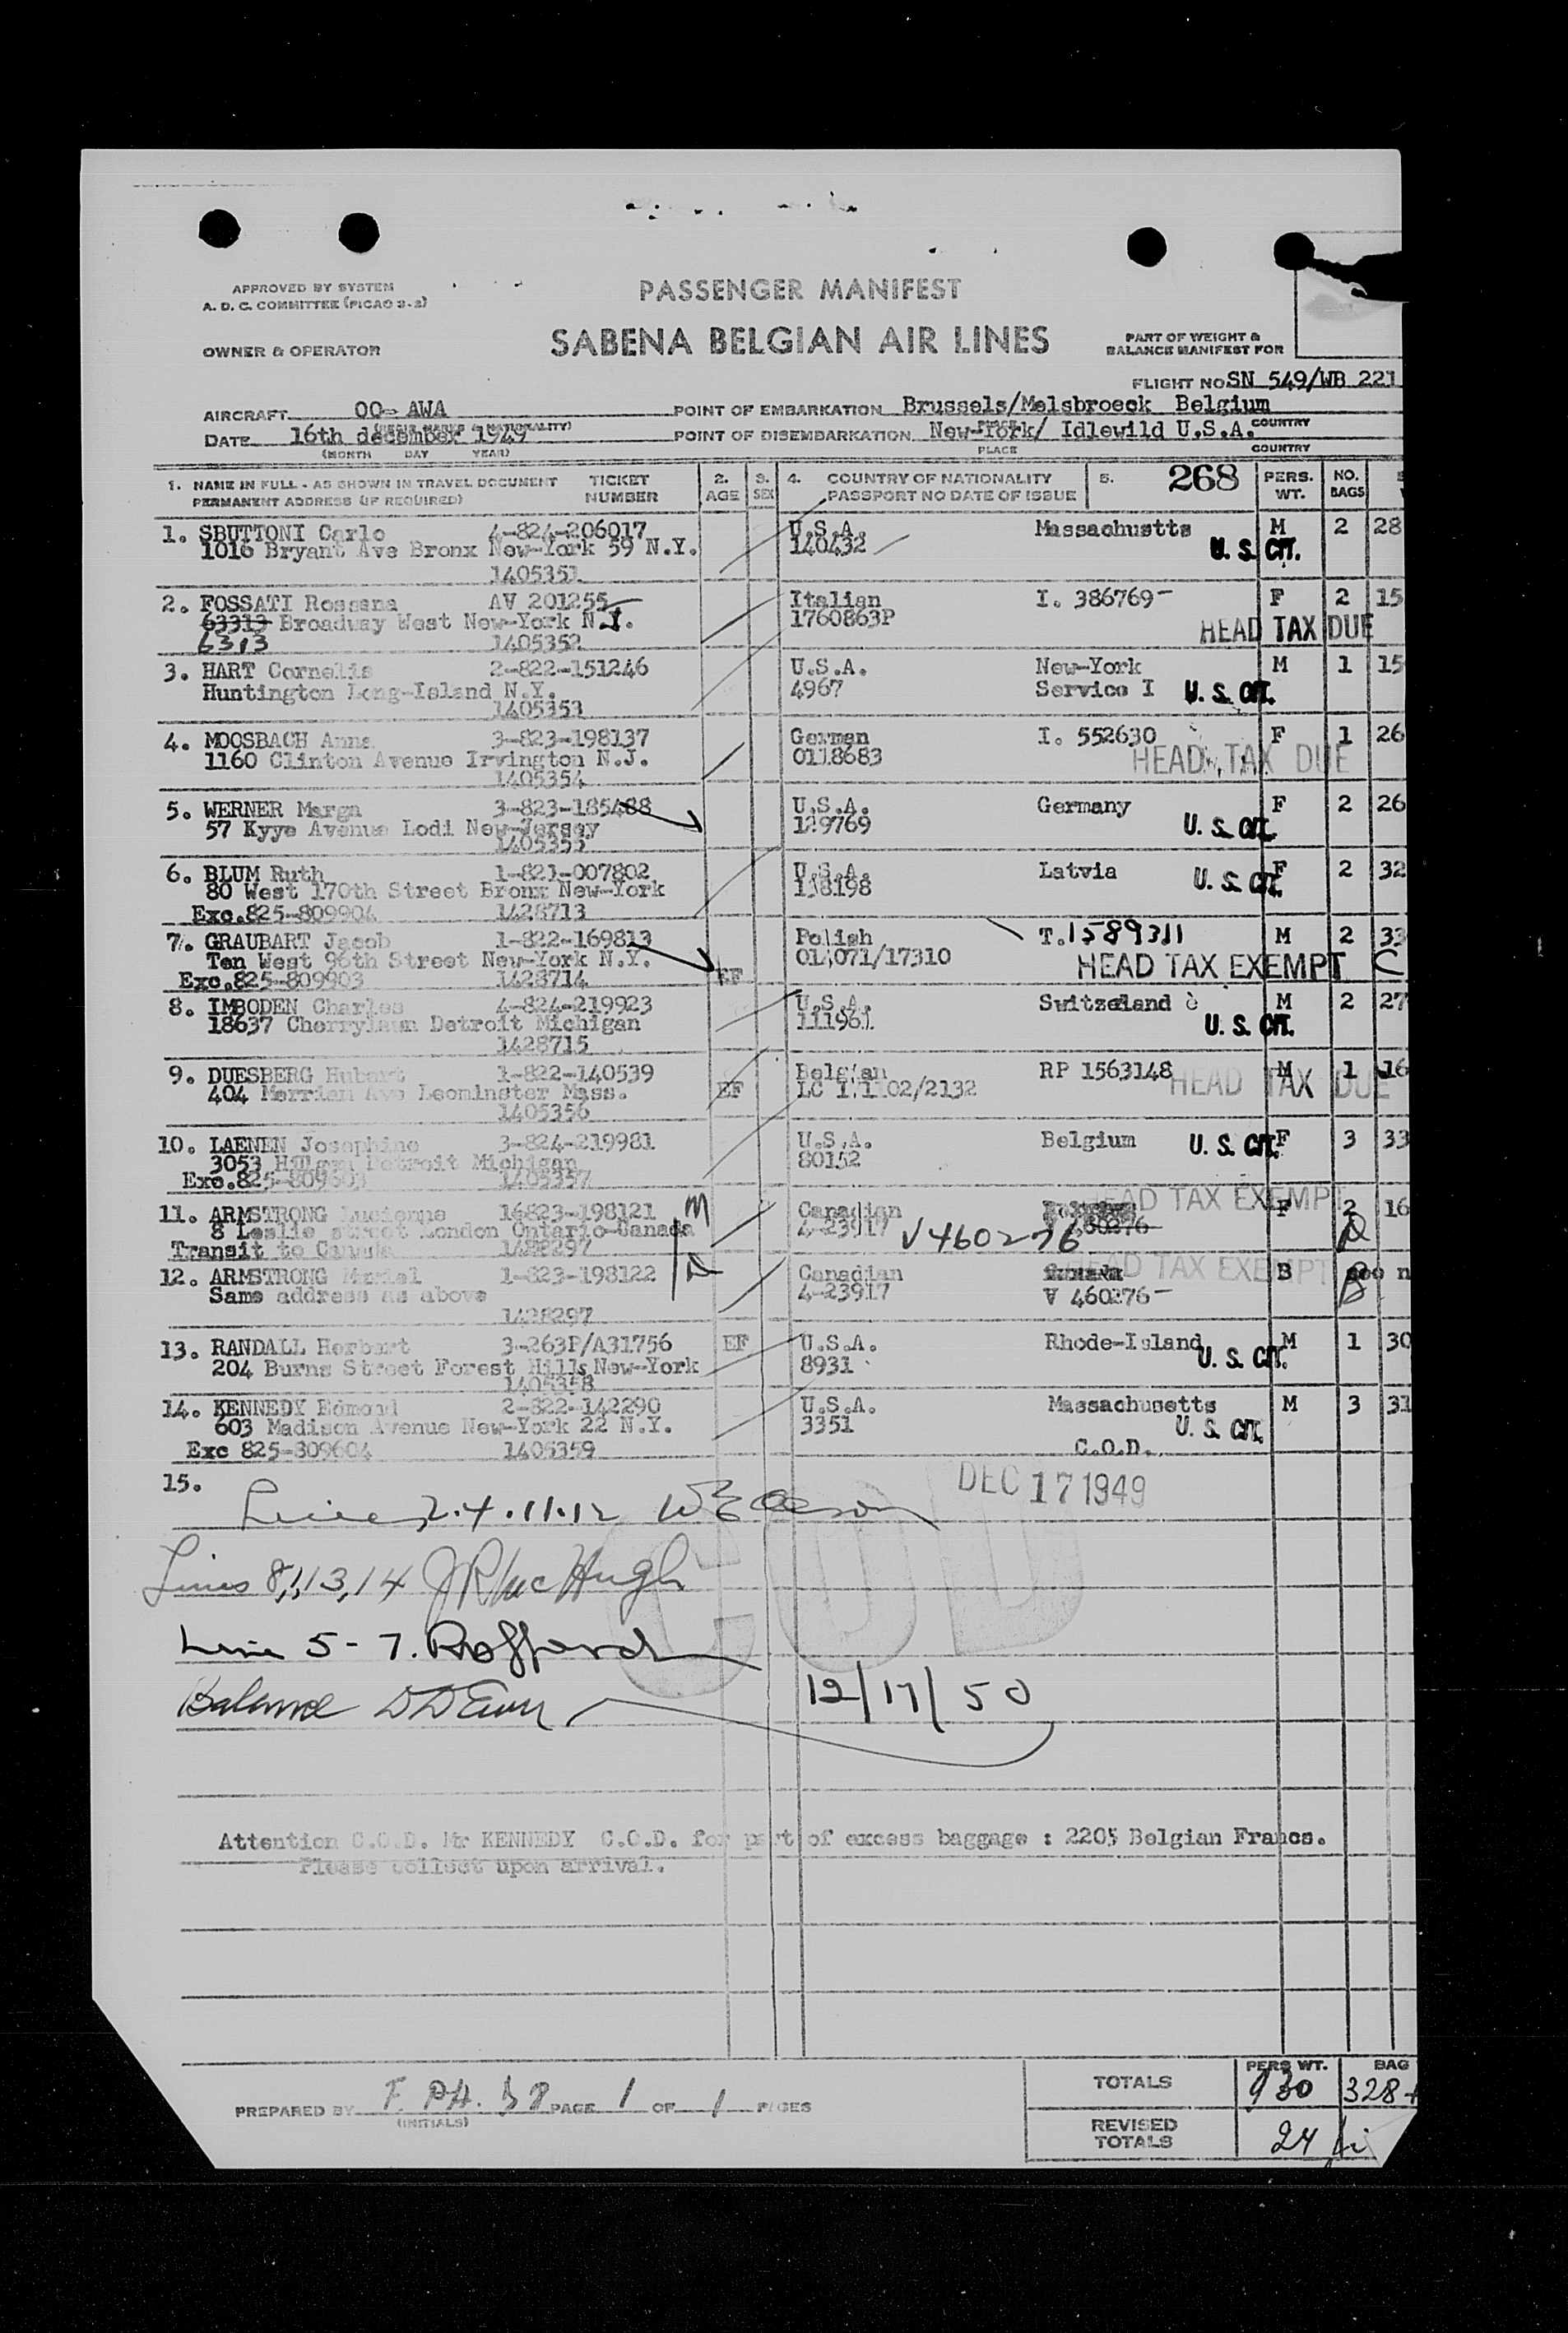 APPROVED BY SYSTEM
A. D. C. COMMITTEE (PICAO 2-2)
PASSENGER MANIFEST
OWNER & OPERATOR
SABENA BELGIAN AIR LINES
PART OF WEIGHT &
BALANCE MANIFEST FOR
FLIGHT NO SN 549/WB 221
AIRCRAFT OO- AWA
POINT OF EMBARKATION Brussels/Melsbroeck Belgium
COUNTRY
DATE 16th december 1949
(MONTH DAY YEAR)
POINT OF DISEMBARKATION New-York/ Idlewild U.S.A.
PLACE COUNTRY
1. NAME IN FULL - AS SHOWN IN TRAVEL DOCUMENT TICKET 2. 3. 4. COUNTRY OF NATIONALITY 5. 268 PERS. NO.
PERMANENT ADDRESS (IF REQUIRED) NUMBER AGE SEX PASSPORT NO DATE OF ISSUE WT. BAGS
1. SBUTTONI Carlo 4-824-206017 U.S.A. Massachustts M 2 28
1016 Bryant Ave Bronx New-York 59 N.Y. 140432 U. S. CIT.
1405351
2. FOSSATI Rossana AV 201255 Italian I. 386769 F 2 15
63313 Broadway West New-York N.J. 1760863P HEAD TAX DUE
6313 1405352
3. HART Cornelis 2-822-151246 U.S.A. New-York M 1 15
Huntington Long-Island N.Y. 4967 Service I U. S. CIT.
1405353
4. MOOSBACH Anna 3-823-198137 German I. 552630 F 1 26
1160 Clinton Avenue Irvington N.J. 0118683 HEAD TAX DUE
1405354
5. WERNER Margn 3-823-185488 U.S.A. Germany F 2 26
57 Kyye Avenue Lodi New-Jersey 129769 U. S. CIT.
1405355
6. BLUM Ruth 1-821-007802 U.S.A. Latvia F 2 32
80 West 170th Street Bronx New-York 118198 U. S. CIT.
Exc.825-809904 1428713
7. GRAUBART Jacob 1-822-169813 Polish T. 1589311 M 2 33
Ten West 96th Street New-York N.Y. 014071/17310 HEAD TAX EXEMPT C
Exc.825-809903 1428714 EF
8. IMBODEN Charles 4-824-219923 U.S.A. Switzeland M 2 27
18637 Cherrylawn Detroit Michigan 111961 U. S. CIT.
1428715
9. DUESBERG Hubert 1-822-140539 Belgian RP 1563148 M 1 16
404 Merriam Ave Leominster Mass. EF HEAD TAX DUE
1405356
10. LAENEN Josephine 3-824-219981 U.S.A. Belgium U. S. CIT. F 3 33
3053 Detroit Michigan 80152
1405357
11. ARMSTRONG Lucienne 14823-198121 M Canadian HEAD TAX EXEMPT F 2 16
8 Leslie street London Ontario-Canada 4-23917 V460276
Transit to Canada 1428297
12. ARMSTRONG 1-823-198122 Canadian HEAD TAX EXEMPT B
Same address as above 4-23917 V 460276
1428297
13. RANDALL Herbert 3-263P/A31756 EF U.S.A. Rhode-Island M 1 30
204 Burns Street Forest Hills New-York 8931 U. S. CIT.
1405358
14. KENNEDY Edmond 2-822-142290 U.S.A. Massachusetts M 3 31
603 Madison Avenue New-York 22 N.Y. 3351 U. S. CIT.
Exc 825-809604 1405359 C.O.D.
15.
DEC 17 1949
Lines 2.4.11.12
COD
Lines 8,1,13,14 J R McHugh
Line 5-7.
Balance 12/17/50
Attention C.O.D. Mr KENNEDY C.O.D. for part of excess baggage : 2205 Belgian Francs.
Please collect upon arrival.
PERS WT. BAG
TOTALS 930 328
PREPARED BY PAGE 1 OF 1 PAGES
(INITIALS)
REVISED
TOTALS 24